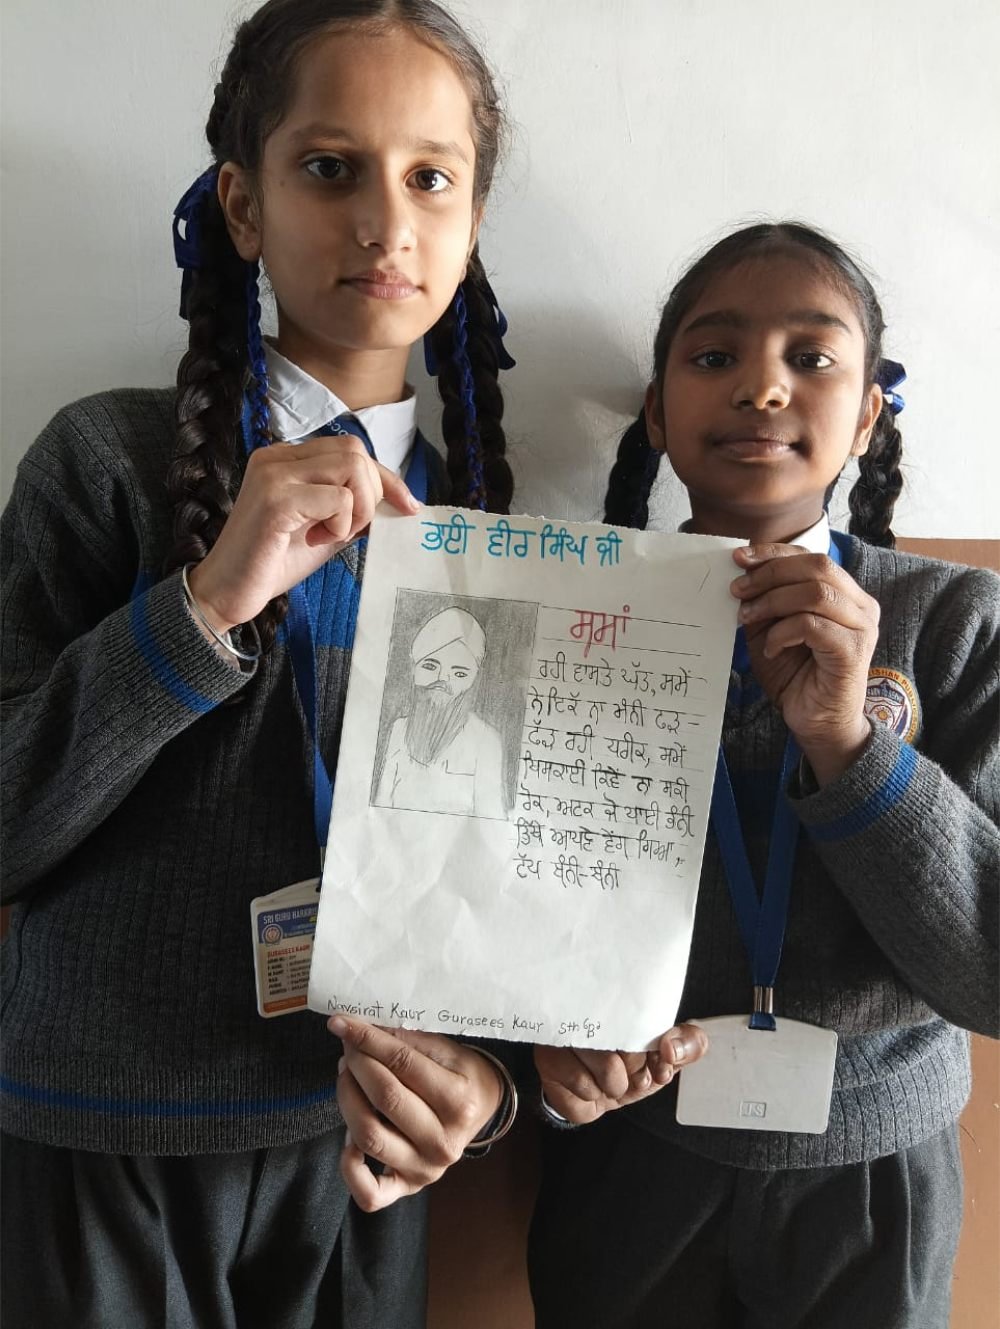 ਭਾਈ ਵੀਰ ਸਿੰਘ ਜੀ
ਸਮਾਂ
ਰਹੀ ਵਾਸਤੇ ਘੱਤ, ਸਮੇਂ
ਨੇ ਇਕੱ ਨਾ ਮੰਨੀ ਫੜ-
ਫੱੜ ਰਹੀ ਧਰੀਕ, ਸਮੇਂ
ਖਿਸਕਾਈ ਕਿਵੇਂ ਨਾ ਸਕੀ
ਰੋਕ, ਅਟਕ ਜੋ ਪਾਈ ਭੰਨੀ
ਤ੍ਰਿੱਖੇ ਆਪਣੇ ਵੇਗ ਗਿਆ
ਟੱਪ ਬੰਨੀ-ਬੰਨੀ
Navsirat Kaur Gurasees Kaur 5th 'B'
SRI GURU HARKRIS
GURASEES KAUR
JS